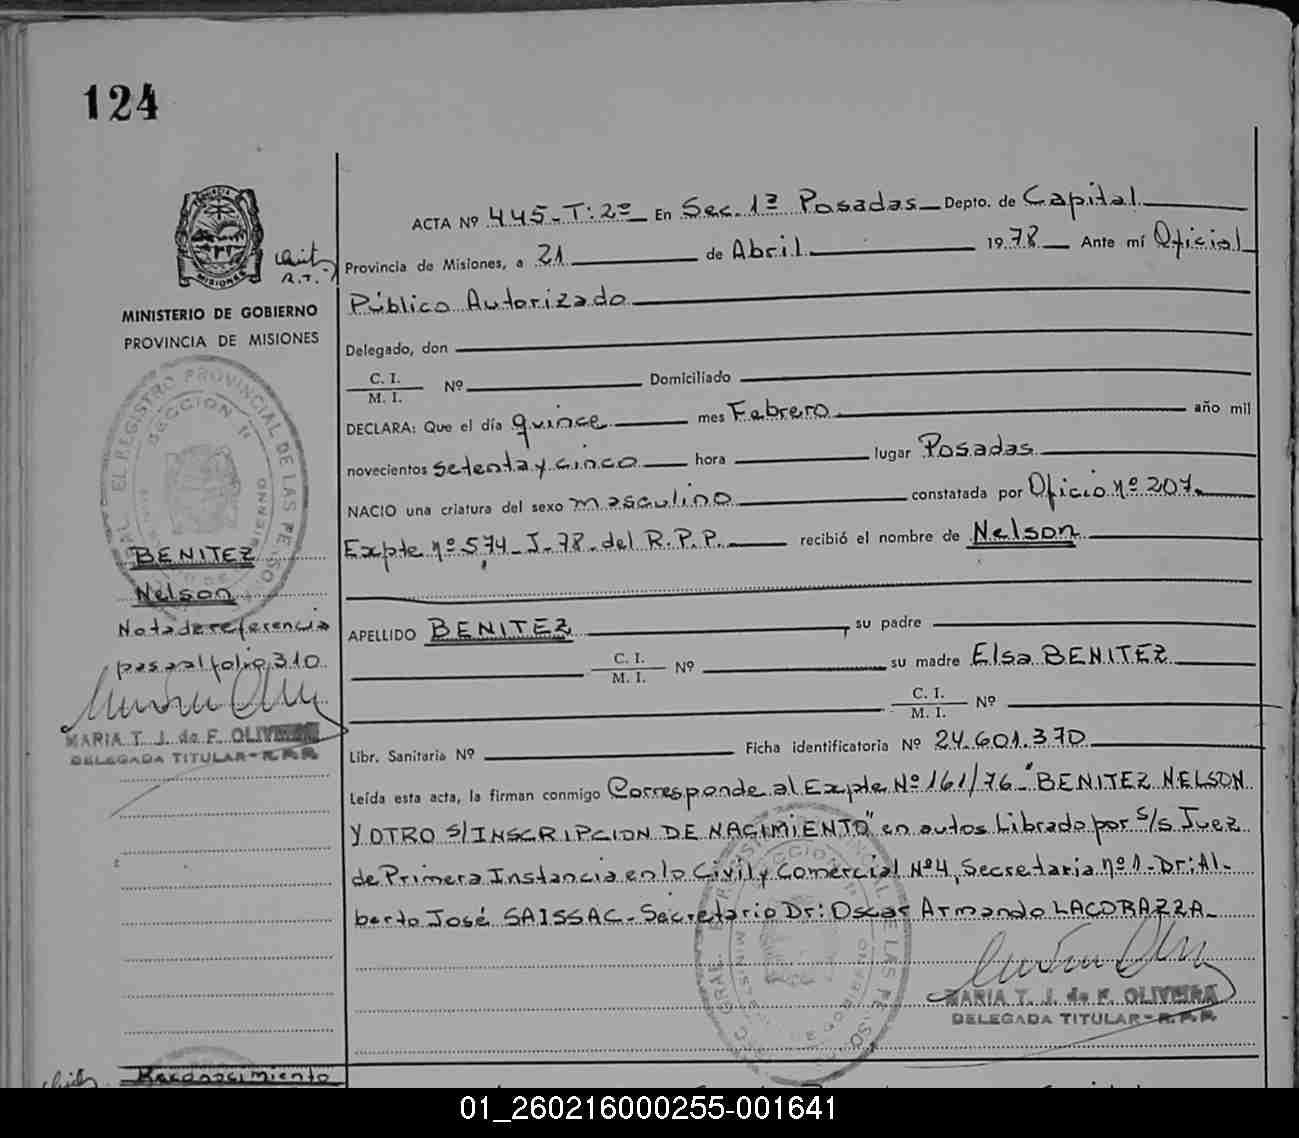 124
ACTA Nº 445-T:2º En Sec. 1ª Posadas Depto. de Capital
Provincia de Misiones, a 21 de Abril 1978 Ante mí Oficial
Público Autorizado
Delegado, don
C. I.
M. I. Nº Domiciliado
DECLARA: Que el día quince mes Febrero año mil
novecientos setenta y cinco hora lugar Posadas
NACIO una criatura del sexo masculino constatada por Oficio nº 207.
Expte nº 574-J-78-del R.P.P. recibió el nombre de Nelson
APELLIDO BENITEZ su padre
C. I.
M. I. Nº su madre Elsa BENITEZ
C. I.
M. I. Nº
Libr. Sanitaria Nº Ficha identificatoria Nº 24.601.370
Leída esta acta, la firman conmigo Corresponde al Expte Nº 161/76-"BENITEZ NELSON
Y OTRO S/INSCRIPCION DE NACIMIENTO" en autos Librado por S/S Juez
de Primera Instancia en lo Civil y Comercial Nº4, Secretaria nº1-Dr: Al-
berto José SAISSAC-Secretario Dr: Oscar Armando LACORAZZA-
MARIA T. J. de F. OLIVEIRA
DELEGADA TITULAR-R.P.P.
MISIONES
R.T.
MINISTERIO DE GOBIERNO
PROVINCIA DE MISIONES
EL REGISTRO PROVINCIAL DE LAS PERSO
SECCION 1ª
BENITEZ
Nelson
Nota de referencia
pasa al folio 310
MARIA T. J. de F. OLIVEIRA
DELEGADA TITULAR-R.P.P.
Reconocimiento
01_260216000255-001641